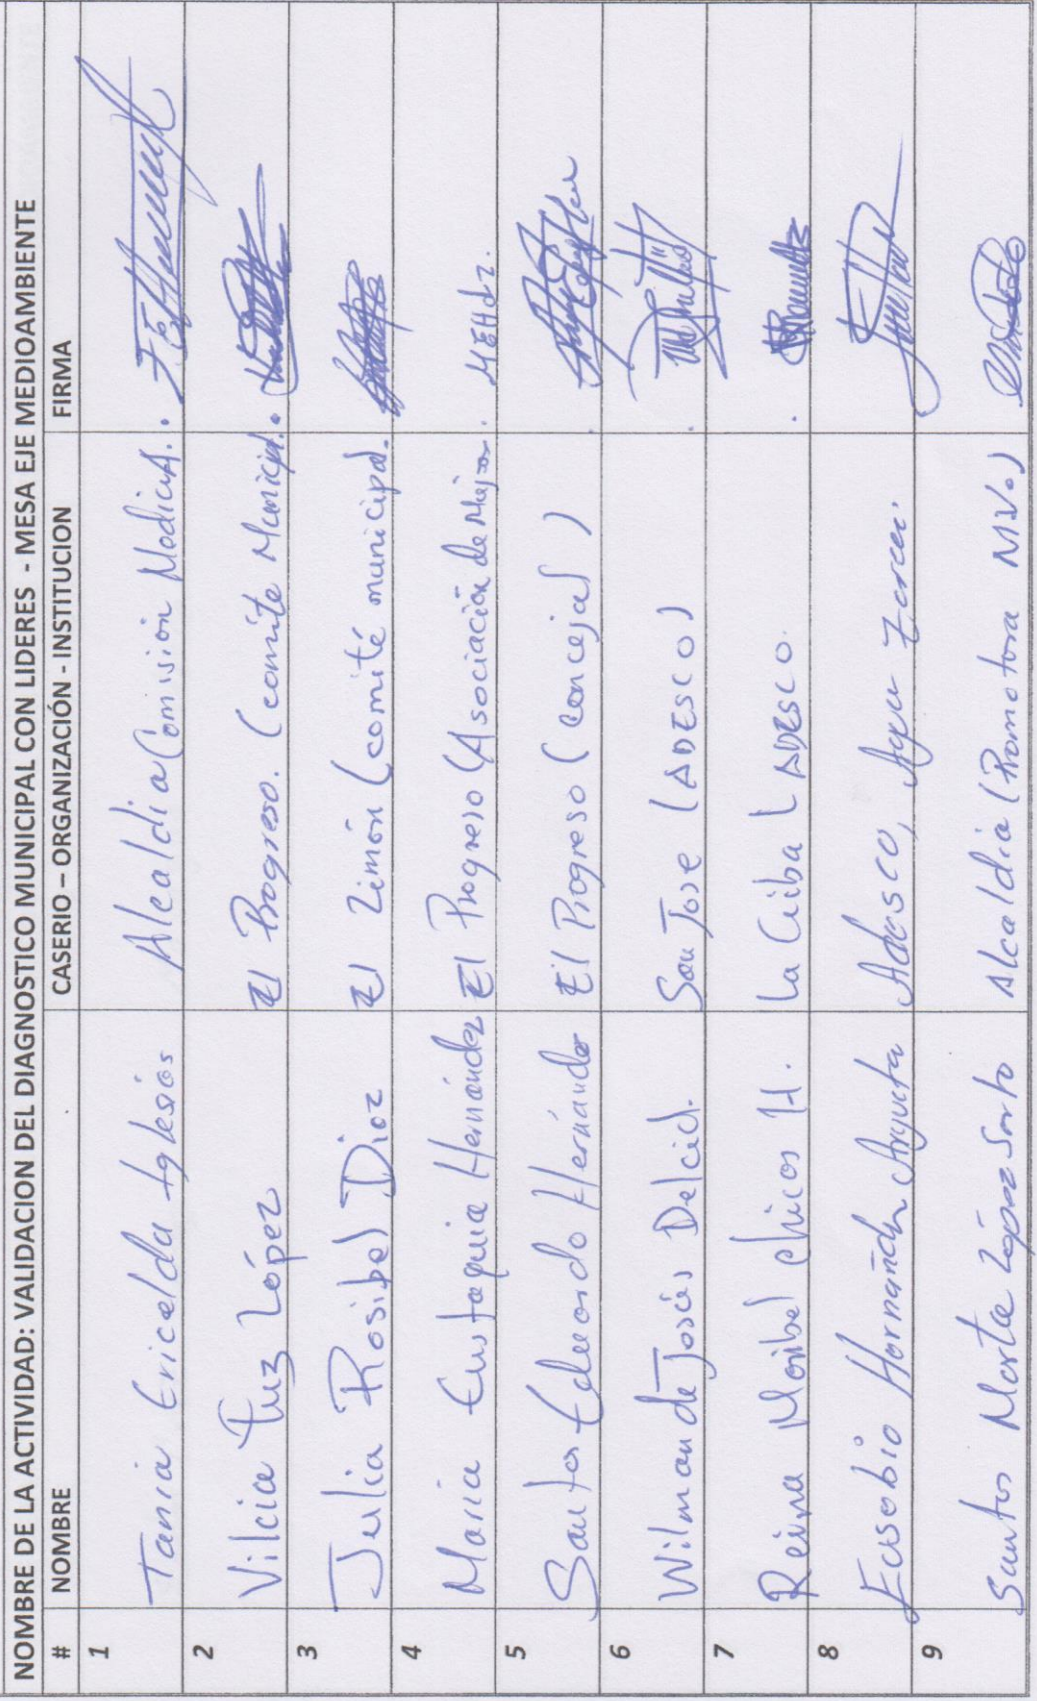 NOMBRE DE LA ACTIVIDAD: VALIDACION DEL DIAGNOSTICO MUNICIPAL CON LIDERES - MESA EJE MEDIOAMBIENTE
# NOMBRE CASERIO – ORGANIZACIÓN - INSTITUCION FIRMA
1 Tania Ericelda Iglesias Alcaldia Comisión
2 Vilcia Luz López El Progreso. (comite Municip.
3 Julia Rosibel Diaz El Limón (comité municipal.
4 Maria Eustaquia Hernández El Progreso (Asociación de Mejor. MEHdz.
5 Santos Eduardo Hernández El Progreso (concejal)
6 Wilman de Jesús Delcid. San Jose (ADESCO)
7 Reina Maribel Chicas H. La Ceiba (ADESCO.
8 Eusebio Hernández Argueta Adesco,
9 Santos Marta López Sorto Alcaldia (Promotora